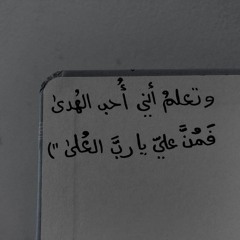 وتعلمُ أنّي أُحب الهُدىٰ
فَمُنَّ عليّ يا ربَّ العُلىٰ ")